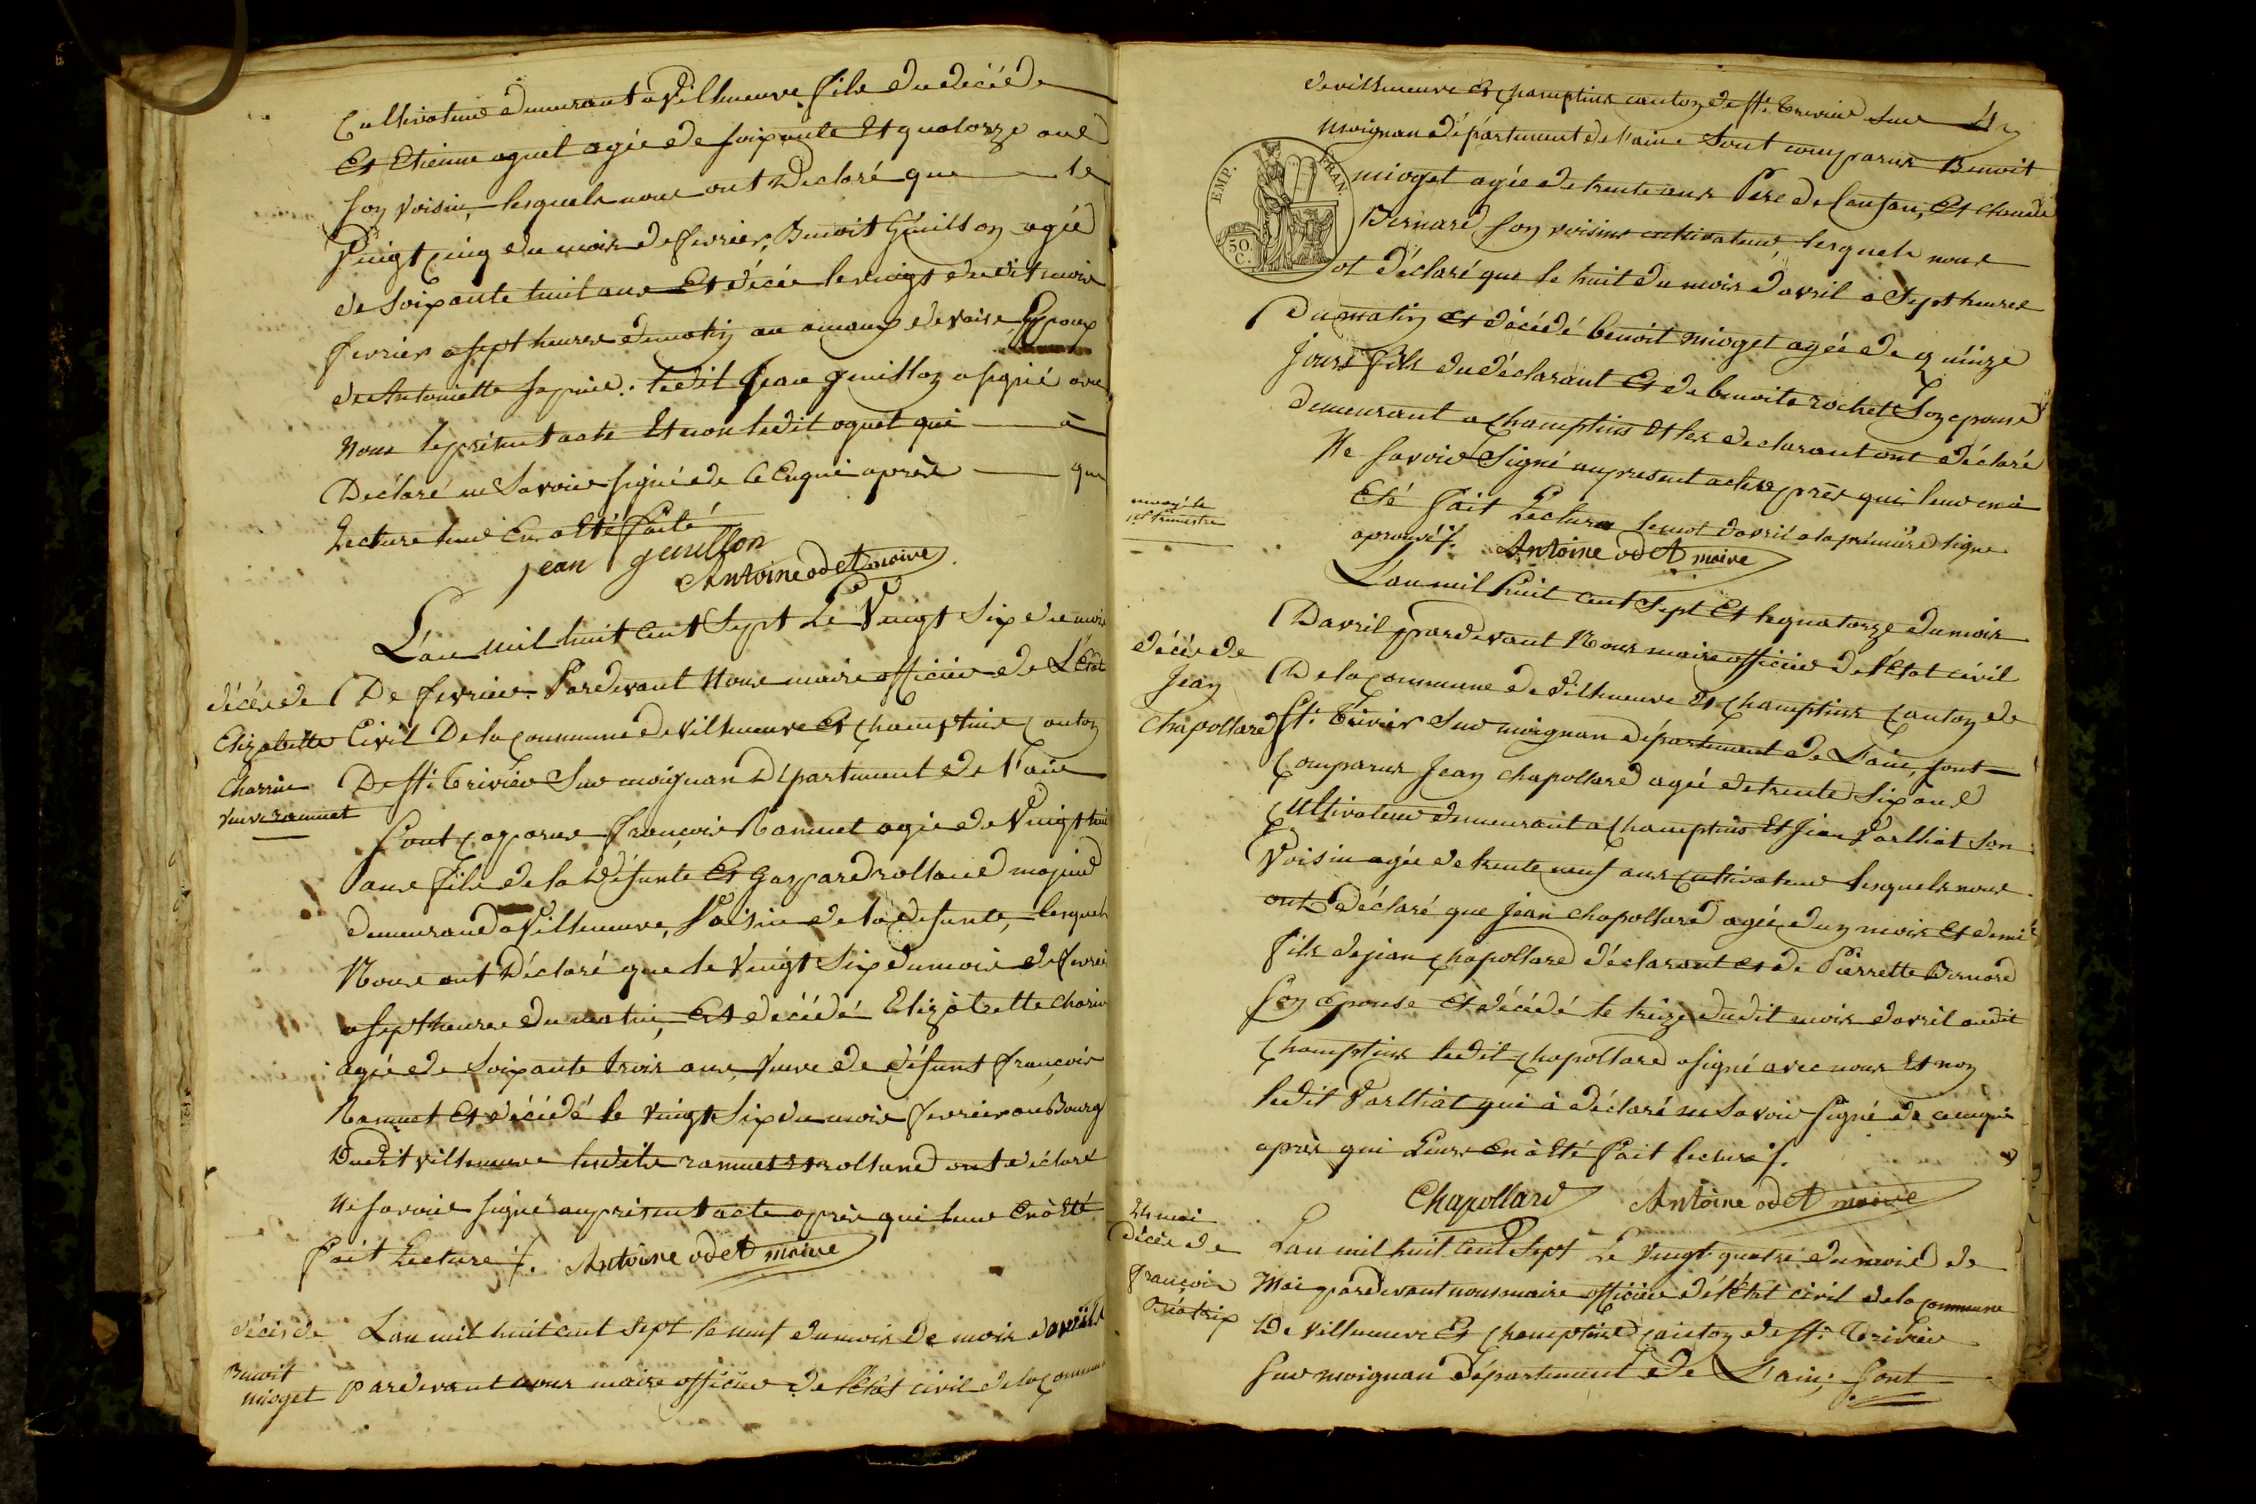 Cultivateur demeurant a Villeneuve fils du décédé
Et Etienne aguet agée de soixante Et quatorze ans
son voisin, lesquels nous ont Declaré que le
Vingt cinq du mois de fevrier, Benoit Guillon agée
de soixante huit ans Et décée le vingt dudit mois
fevrier a sept heures du matin au de Epoux
de Antoinette ledit Jean guillon a signé avec
Nous le présent acte Et non ledit aguet qui a
Declaré ne Savoir signé de ce Enqui après que
Lecture leur En a Eté faite
jean guillon
Antoine odet maire
décée de
Elizabette
Charrin
veuve ramuet
L'an mil huit Cent Sept Le Vingt Six du mois
De fevrier Pardevant Nous maire officier de L'Etat
Civil De la Commune de Villeneuve Et Champtins Canton
De St. Trivier Sur moignan Département de l'ain
Sont Coparus françois Ramuet agée de Vingt huit
ans fils de la Défunte Et Gaspard rolland
demeurand a Villeneuve, Voisin de la defunte, lesquels
Nous ont Déclaré que le Vingt Six du mois de fevrier
a sept heures du matin, Est décédé Elizabette Charin
agée de Soixante trois ans, Veuve de défunt françois
Ramuet Et décédé le vingt Six du mois fevrier au Bourg
Dudit villeneuve lesdits ramuet Et rolland ont déclaré
Ne Savoir signé au présent acte après qui leur En à Eté
fait Lecture /. Antoine odet maire
décès de
Benoit
mioget
L'an mil huit cent sept le neuf du mois de mois d'avril
pardevant nous maire officier de l'Etat civil de la commune
de villeneuve Et Champtins canton de St. Trivier Sur
moignan département de l'ain Sont comparus Benoit
mioget agée de trente ans Père de L'enfan, Et Claude
Bernard son voisins cultivateur, lesquels nous
ot déclaré que le huit du mois d'avril a Sept heures
EMP. FRAN.
50.
C.
Du matin Et décédé benoit mioget agée de quinze
Jours fils du déclarant Et de benoite rochet Son epouse
demeurant a Champtins Et les declarant ont déclaré
Ne Savoir Signé au present acte après qui leur en à
Eté fait Lecture le mot d'avril a la première ligne
aprouvé /. Antoine odet maire
envoyé le
1er trimestre
décée de
Jean
Chapollard
L'an mil huit cent Sept Et le quatorze du mois
D'avril pardevant Nous maire officier de l'Etat civil
De la Commune de Villeneuve Et Champtins Canton de
St. Trivier Sur moignan département de L'ain, sont
Comparus Jean Chapollard agée de trente Six ans
Cultivateur demeurant a Champtins Et Jean Varlliat Son
Voisin agée de trente neuf ans Cultivateur lesquels nous
ont déclaré que Jean Chapollard agée d'un mois Et demi
fils de jean Chapollard déclarant et de Pierrette Bernard
Son épouse Et décédé le treize dudit mois d'avril audit
Champtins ledit Chapollard a signé avec nous Et non
ledit Varlliat qui à déclaré ne Savoir Signé de ce enqui
après qui Leure En à Eté fait lecture /.
Chapollard Antoine odet maire
24 mai
décée de
françois
L'an mil huit Cent Sept Le Vingt quatre du mois de
Mai pardevant nous maire officier de l'Etat civil de la commune
De Villeneuve Et Champtins Canton de St. Trivier
Sur moignan département de L'ain, Sont